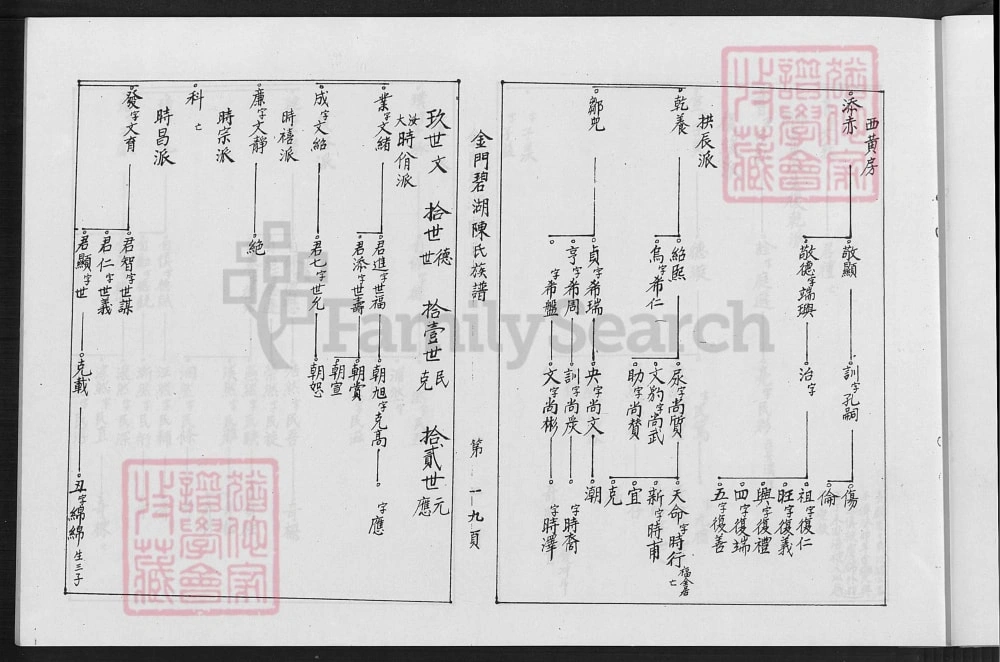 西黃房
添赤
敬顯
訓字孔嗣
傷
倫
敬德字端璵
治字
祖字復仁
旺字復義
興字復禮
四字復端
五字復善
拱辰派
乾養
紹熙
尿字尚質
天命字時行
亡
新字時甫
文豹字尚武
宜
烏字希仁
助字尚贊
克
鄒兜
貞字希瑞
央字尚文
潮
亨字希周
訓字尚炭
字時裔
字希盤
文字尚彬
字時澤
金門碧湖陳氏族譜
第一九頁
玖世文
拾世德
世
拾壹世民
克
拾貳世元
應
汝大時佾派
業字文緒
君進字世福
朝旭字克高
字應
君添字世壽
朝賞
朝宣
成字文紹
君七字世允
朝恕
時禧派
廉字文靜
絕
時宗派
科
亡
時昌派
發字文育
君智字世謀
君仁字世義
君顯字世
克載
丑字綿綿生三子
猶他家譜學會收藏
猶他家譜學會收藏
FamilySearch